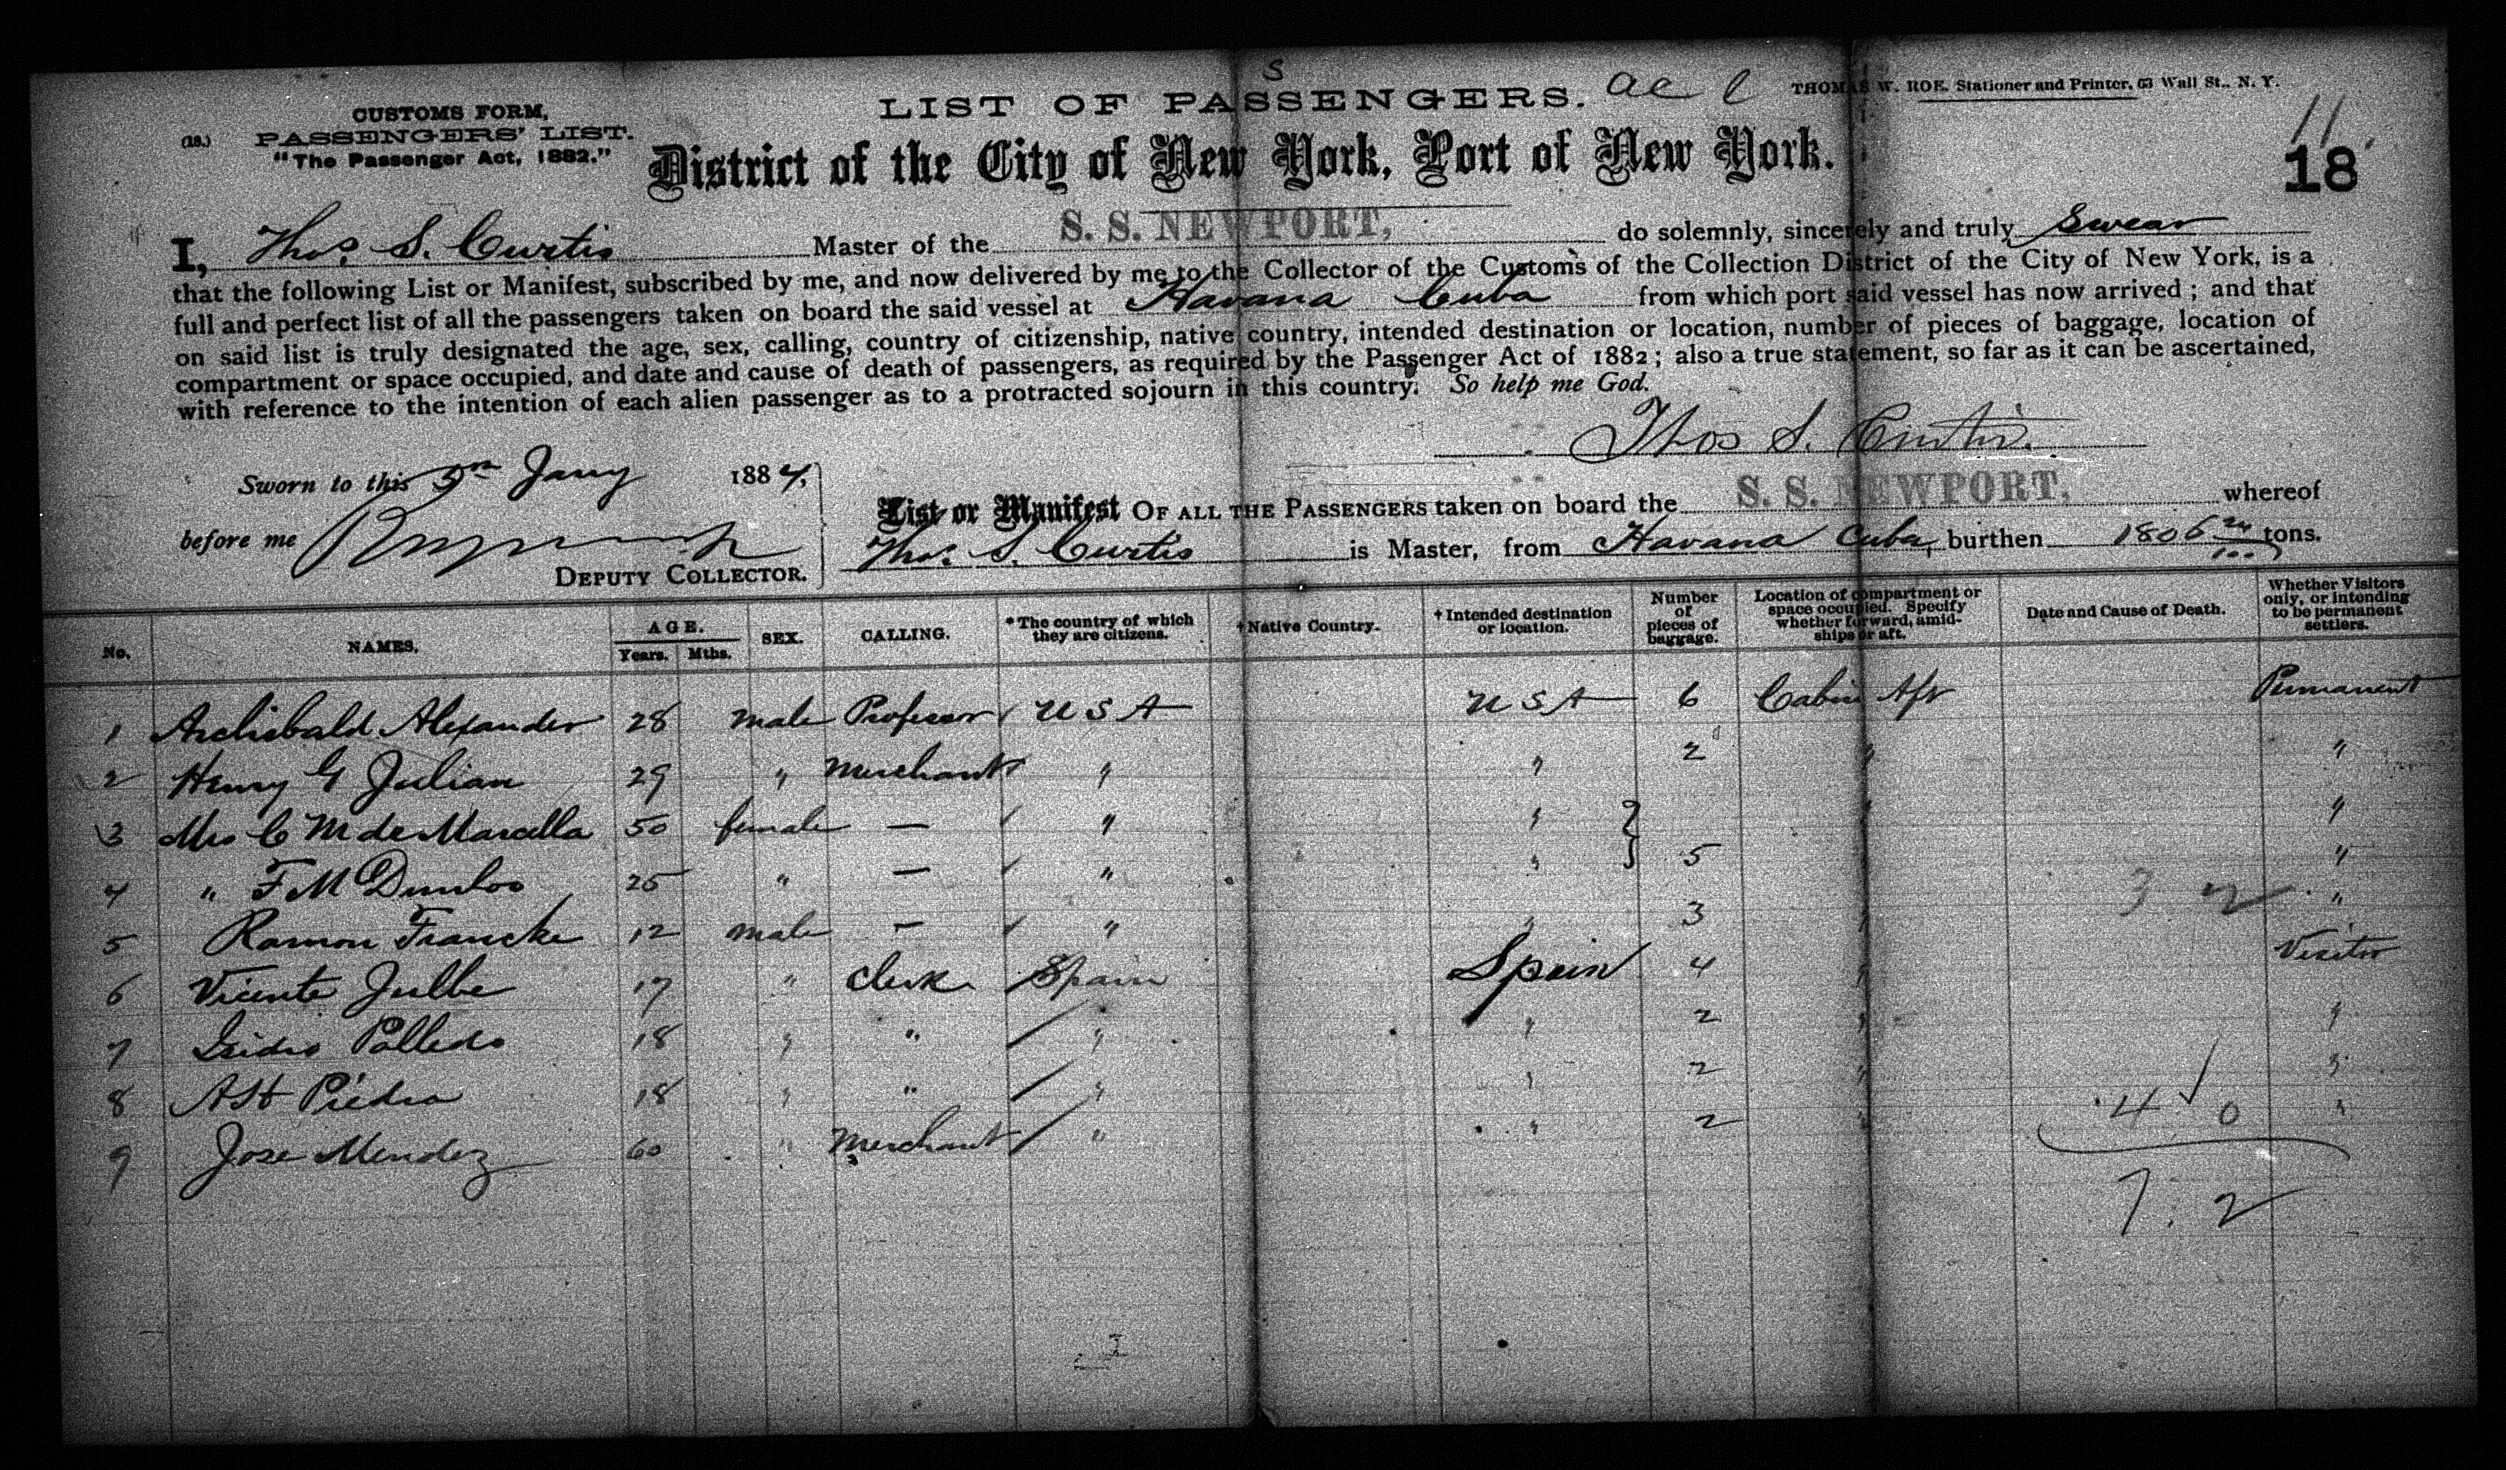 S
LIST OF PASSENGERS.
THOMAS W. ROE. Stationer and Printer, 63 Wall St., N. Y.
CUSTOMS FORM,
(18.) PASSENGERS' LIST.
"The Passenger Act, 1882."
District of the City of New York, Port of New York.
11
18
I, Thos. S. Curtis Master of the S. S. NEWPORT, do solemnly, sincerely and truly Swear
that the following List or Manifest, subscribed by me, and now delivered by me to the Collector of the Customs of the Collection District of the City of New York, is a
full and perfect list of all the passengers taken on board the said vessel at Havana Cuba from which port said vessel has now arrived ; and that
on said list is truly designated the age, sex, calling, country of citizenship, native country, intended destination or location, number of pieces of baggage, location of
compartment or space occupied, and date and cause of death of passengers, as required by the Passenger Act of 1882 ; also a true statement, so far as it can be ascertained,
with reference to the intention of each alien passenger as to a protracted sojourn in this country. So help me God.
Thos S. Curtis.
Sworn to this 5th Jany 1884,
before me
DEPUTY COLLECTOR.
List or Manifest OF ALL THE PASSENGERS taken on board the S. S. NEWPORT, whereof
Thos. S. Curtis is Master, from Havana Cuba, burthen 1806 tons.
No. NAMES. AGE. Years. Mths. SEX. CALLING. *The country of which they are citizens. †Native Country. †Intended destination or location. Number of pieces of baggage. Location of compartment or space occupied. Specify whether forward, amidships or aft. Date and Cause of Death. Whether Visitors only, or intending to be permanent settlers.
1 Archibald Alexander 28 male Professor U S A U S A 6 Cabin Aft Permanent
2 Henry G Julian 29 " merchant " " 2 " "
3 Mrs C M de Marcella 50 female — " " " "
4 " F M Dunlos 25 " — " " 5 " "
5 Ramon Francke 12 male — " " 3 " "
6 Vicente Julbe 17 " Clerk Spain Spain 4 " Visitor
7 Isidro Polledo 18 " " " " 2 " "
8 A H Piedra 18 " " " " 2 " "
9 Jose Mendez 60 " merchant " " 2 " "
3 2
4 0
7. 2